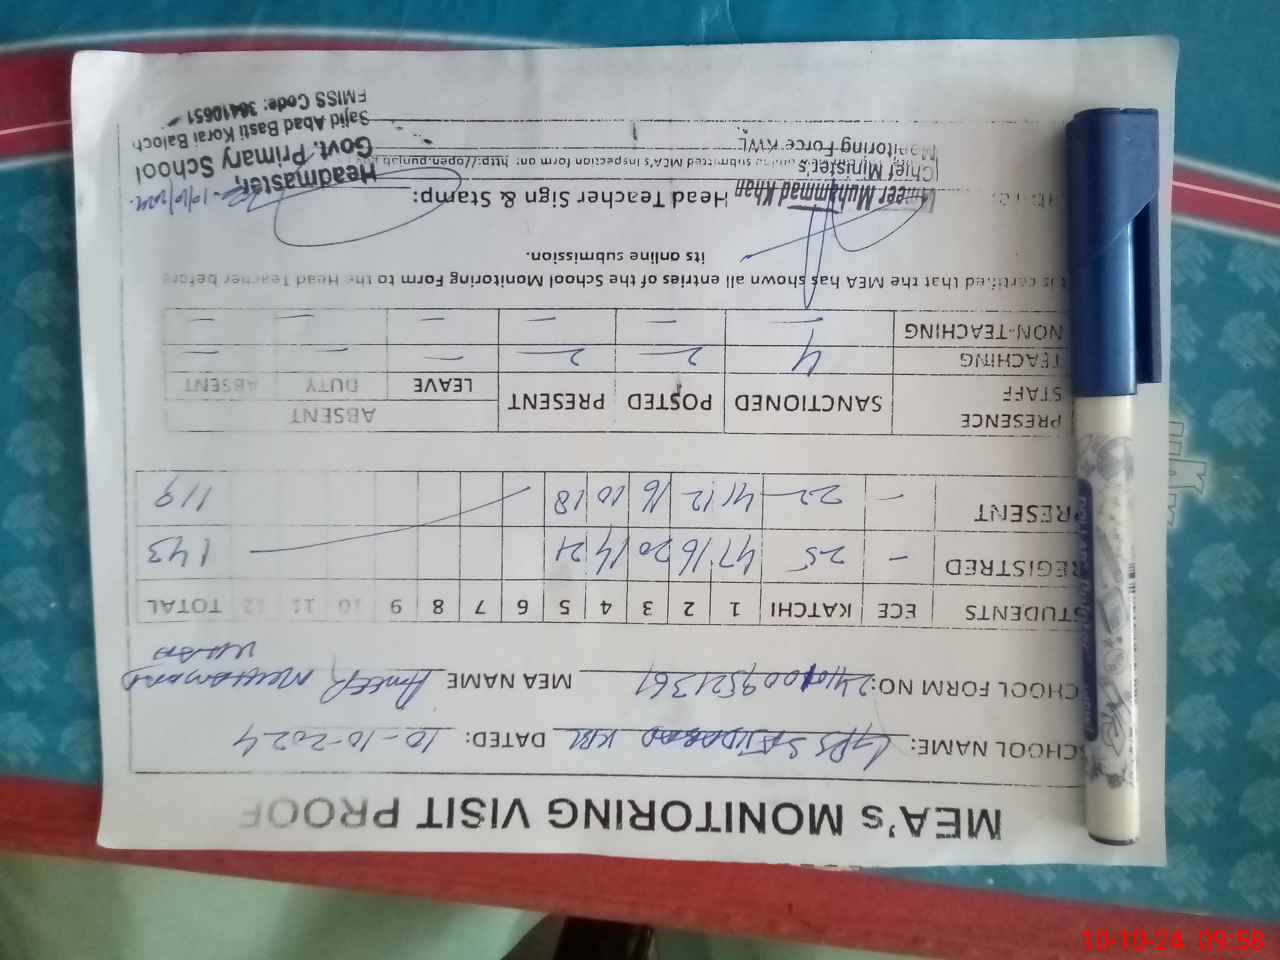 MEA's MONITORING VISIT PROOF
SCHOOL NAME: GPS SAJIDABAD KBL DATED: 10-10-2024
SCHOOL FORM NO: MEA NAME AMEER MUHAMMAD
KHAN
STUDENTS ECE KATCHI 1 2 3 4 5 6 7 8 9 10 11 12 TOTAL
REGISTRED — 25 47 16 20 14 21 143
PRESENT — 22 41 12 16 10 18 119
PRESENCE STAFF SANCTIONED POSTED PRESENT ABSENT
LEAVE DUTY ABSENT
TEACHING 4 2 2 — — —
NON-TEACHING — — — — — —
It is certified that the MEA has shown all entries of the School Monitoring Form to the Head Teacher before
its online submission.
Head Teacher Sign & Stamp:
Ameer Muhammad Khan
Chief Minister's
Monitoring Force KWL
submitted MEA's inspection form on: http://open.punjab
10/10/2024.
Headmaster,
Govt. Primary School
Sajid Abad Basti Korai Baloch
EMISS Code: 36410651
10-10-24 09:58